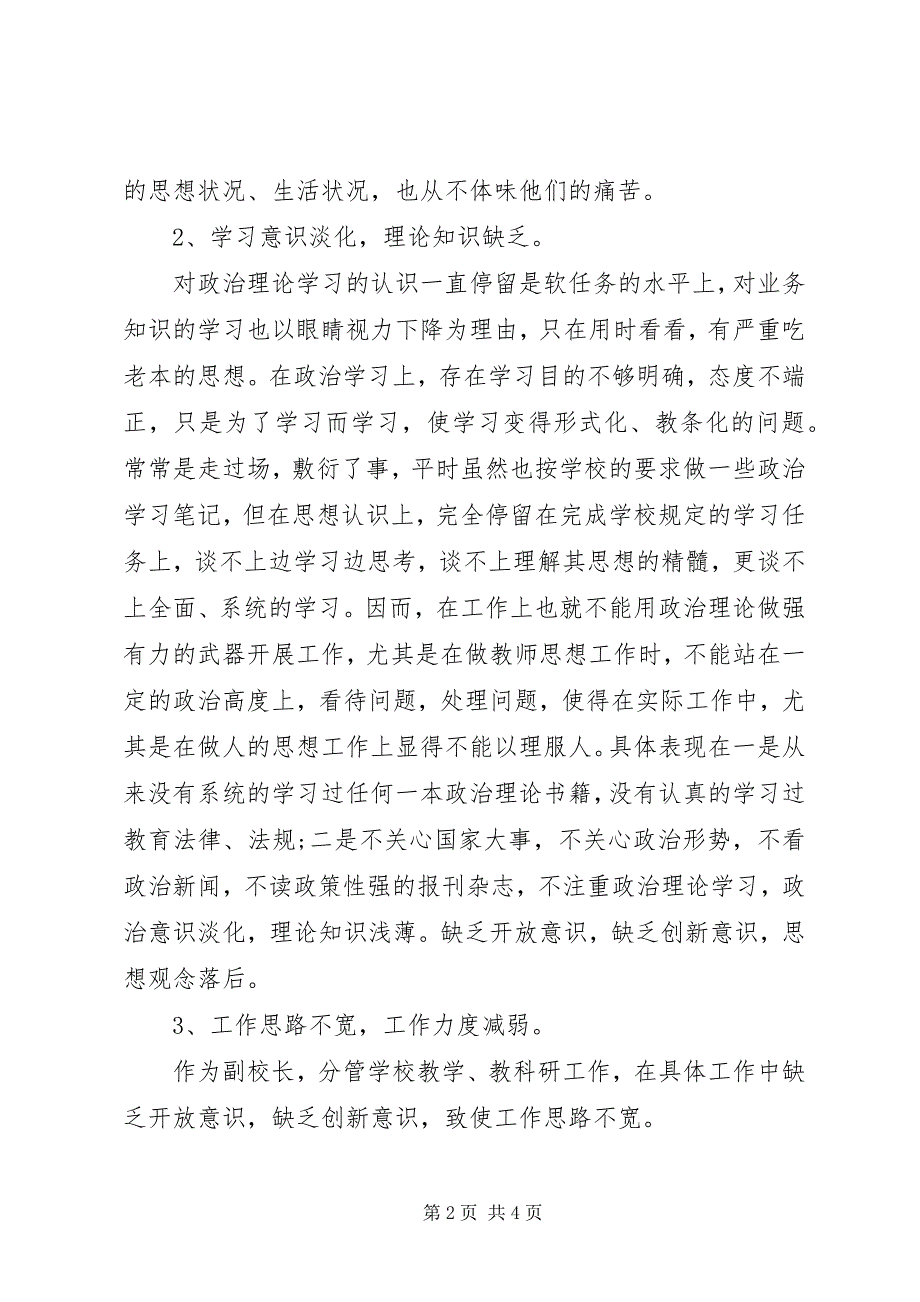 的思想状况、生活状况，也从不体味他们的痛苦。
2、学习意识淡化，理论知识缺乏。
对政治理论学习的认识一直停留是软任务的水平上，对业务
知识的学习也以眼睛视力下降为理由，只在用时看看，有严重吃
老本的思想。在政治学习上，存在学习目的不够明确，态度不端
正，只是为了学习而学习，使学习变得形式化、教条化的问题。
常常是走过场，敷衍了事，平时虽然也按学校的要求做一些政治
学习笔记，但在思想认识上，完全停留在完成学校规定的学习任
务上，谈不上边学习边思考，谈不上理解其思想的精髓，更谈不
上全面、系统的学习。因而，在工作上也就不能用政治理论做强
有力的武器开展工作，尤其是在做教师思想工作时，不能站在一
定的政治高度上，看待问题，处理问题，使得在实际工作中，尤
其是在做人的思想工作上显得不能以理服人。具体表现在一是从
来没有系统的学习过任何一本政治理论书籍，没有认真的学习过
教育法律、法规;二是不关心国家大事，不关心政治形势，不看
政治新闻，不读政策性强的报刊杂志，不注重政治理论学习，政
治意识淡化，理论知识浅薄。缺乏开放意识，缺乏创新意识，思
想观念落后。
3、工作思路不宽，工作力度减弱。
作为副校长，分管学校教学、教科研工作，在具体工作中缺
乏开放意识，缺乏创新意识，致使工作思路不宽。
第 2 页 共 4 页